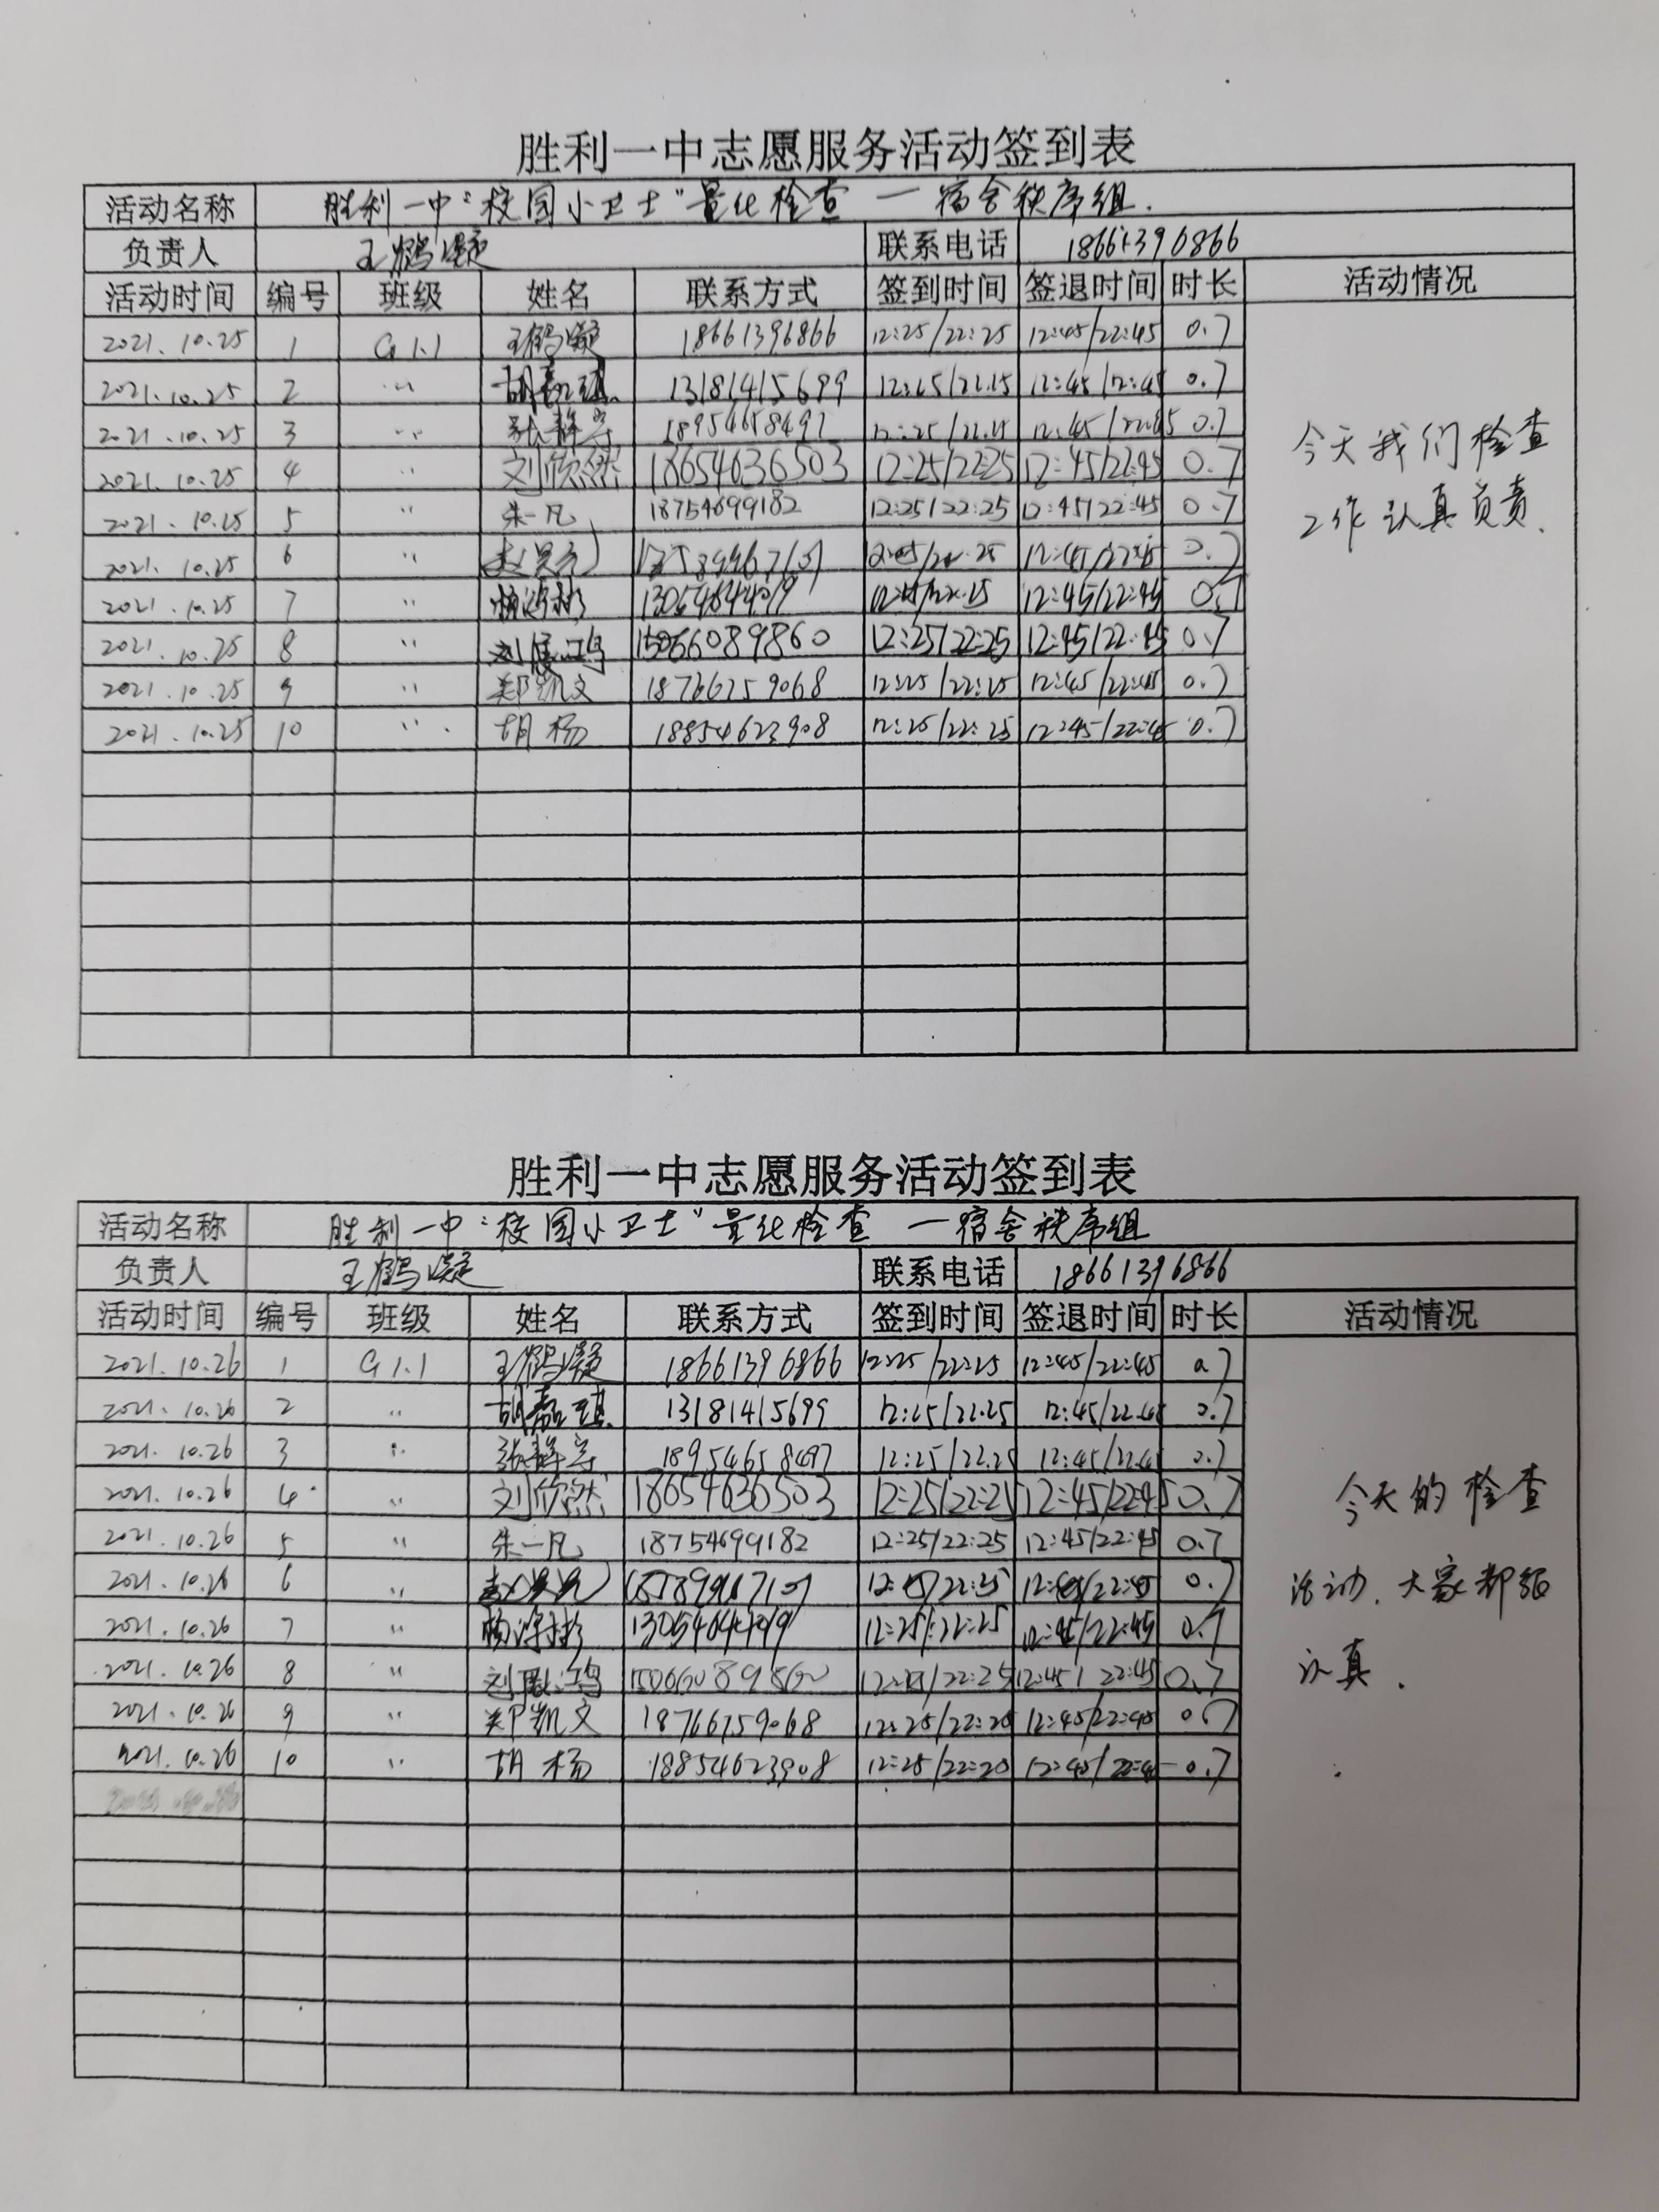 胜利一中志愿服务活动签到表
活动名称 胜利一中"校园小卫士"量化检查 — 宿舍秩序组.
负责人 王鹤凝 联系电话 18661396866
活动时间 编号 班级 姓名 联系方式 签到时间 签退时间 时长 活动情况
2021.10.25 1 G1.1 王鹤凝 18661396866 12:25/22:25 12:45/22:45 0.7
2021.10.25 2 〃 胡嘉琪 13181415699 12:25/22:25 12:45/22:45 0.7
2021.10.25 3 〃 张静宇 18954658497 12:25/22:25 12:45/22:45 0.7
2021.10.25 4 〃 刘欣然 18654636503 12:25/22:25 12:45/22:45 0.7
2021.10.25 5 〃 朱一凡 18754699182 12:25/22:25 12:45/22:45 0.7
2021.10.25 6 〃 12:45/22:45 0.7
2021.10.25 7 〃 12:45/22:45 0.7
2021.10.25 8 〃 15066089860 12:25/22:25 12:45/22:45 0.7
2021.10.25 9 〃 郑凯文 18766759068 12:25/22:25 12:45/22:45 0.7
2021.10.25 10 〃 胡杨 18854623908 12:25/22:25 12:45/22:45 0.7
今天我们检查
工作认真负责.
胜利一中志愿服务活动签到表
活动名称 胜利一中"校园小卫士"量化检查 — 宿舍秩序组
负责人 王鹤凝 联系电话 18661396866
活动时间 编号 班级 姓名 联系方式 签到时间 签退时间 时长 活动情况
2021.10.26 1 G1.1 王鹤凝 18661396866 12:25/22:25 12:45/22:45 0.7
2021.10.26 2 〃 胡嘉琪 13181415699 12:25/22:25 12:45/22:45 0.7
2021.10.26 3 〃 张静宇 18954658497 12:25/22:25 12:45/22:45 0.7
2021.10.26 4 〃 刘欣然 18654636503 12:25/22:25 12:45/22:45 0.7
2021.10.26 5 〃 朱一凡 18754699182 12:25/22:25 12:45/22:45 0.7
2021.10.26 6 〃 0.7
2021.10.26 7 〃 12:25/22:25 12:45/22:45 0.7
2021.10.26 8 〃 15066089860 12:45/22:45 0.7
2021.10.26 9 〃 郑凯文 18766759068 12:25/22:25 12:45/22:45 0.7
2021.10.26 10 〃 胡杨 18854623908 12:25/22:25 12:45/22:45 0.7
今天的检查
活动.大家都很
认真.